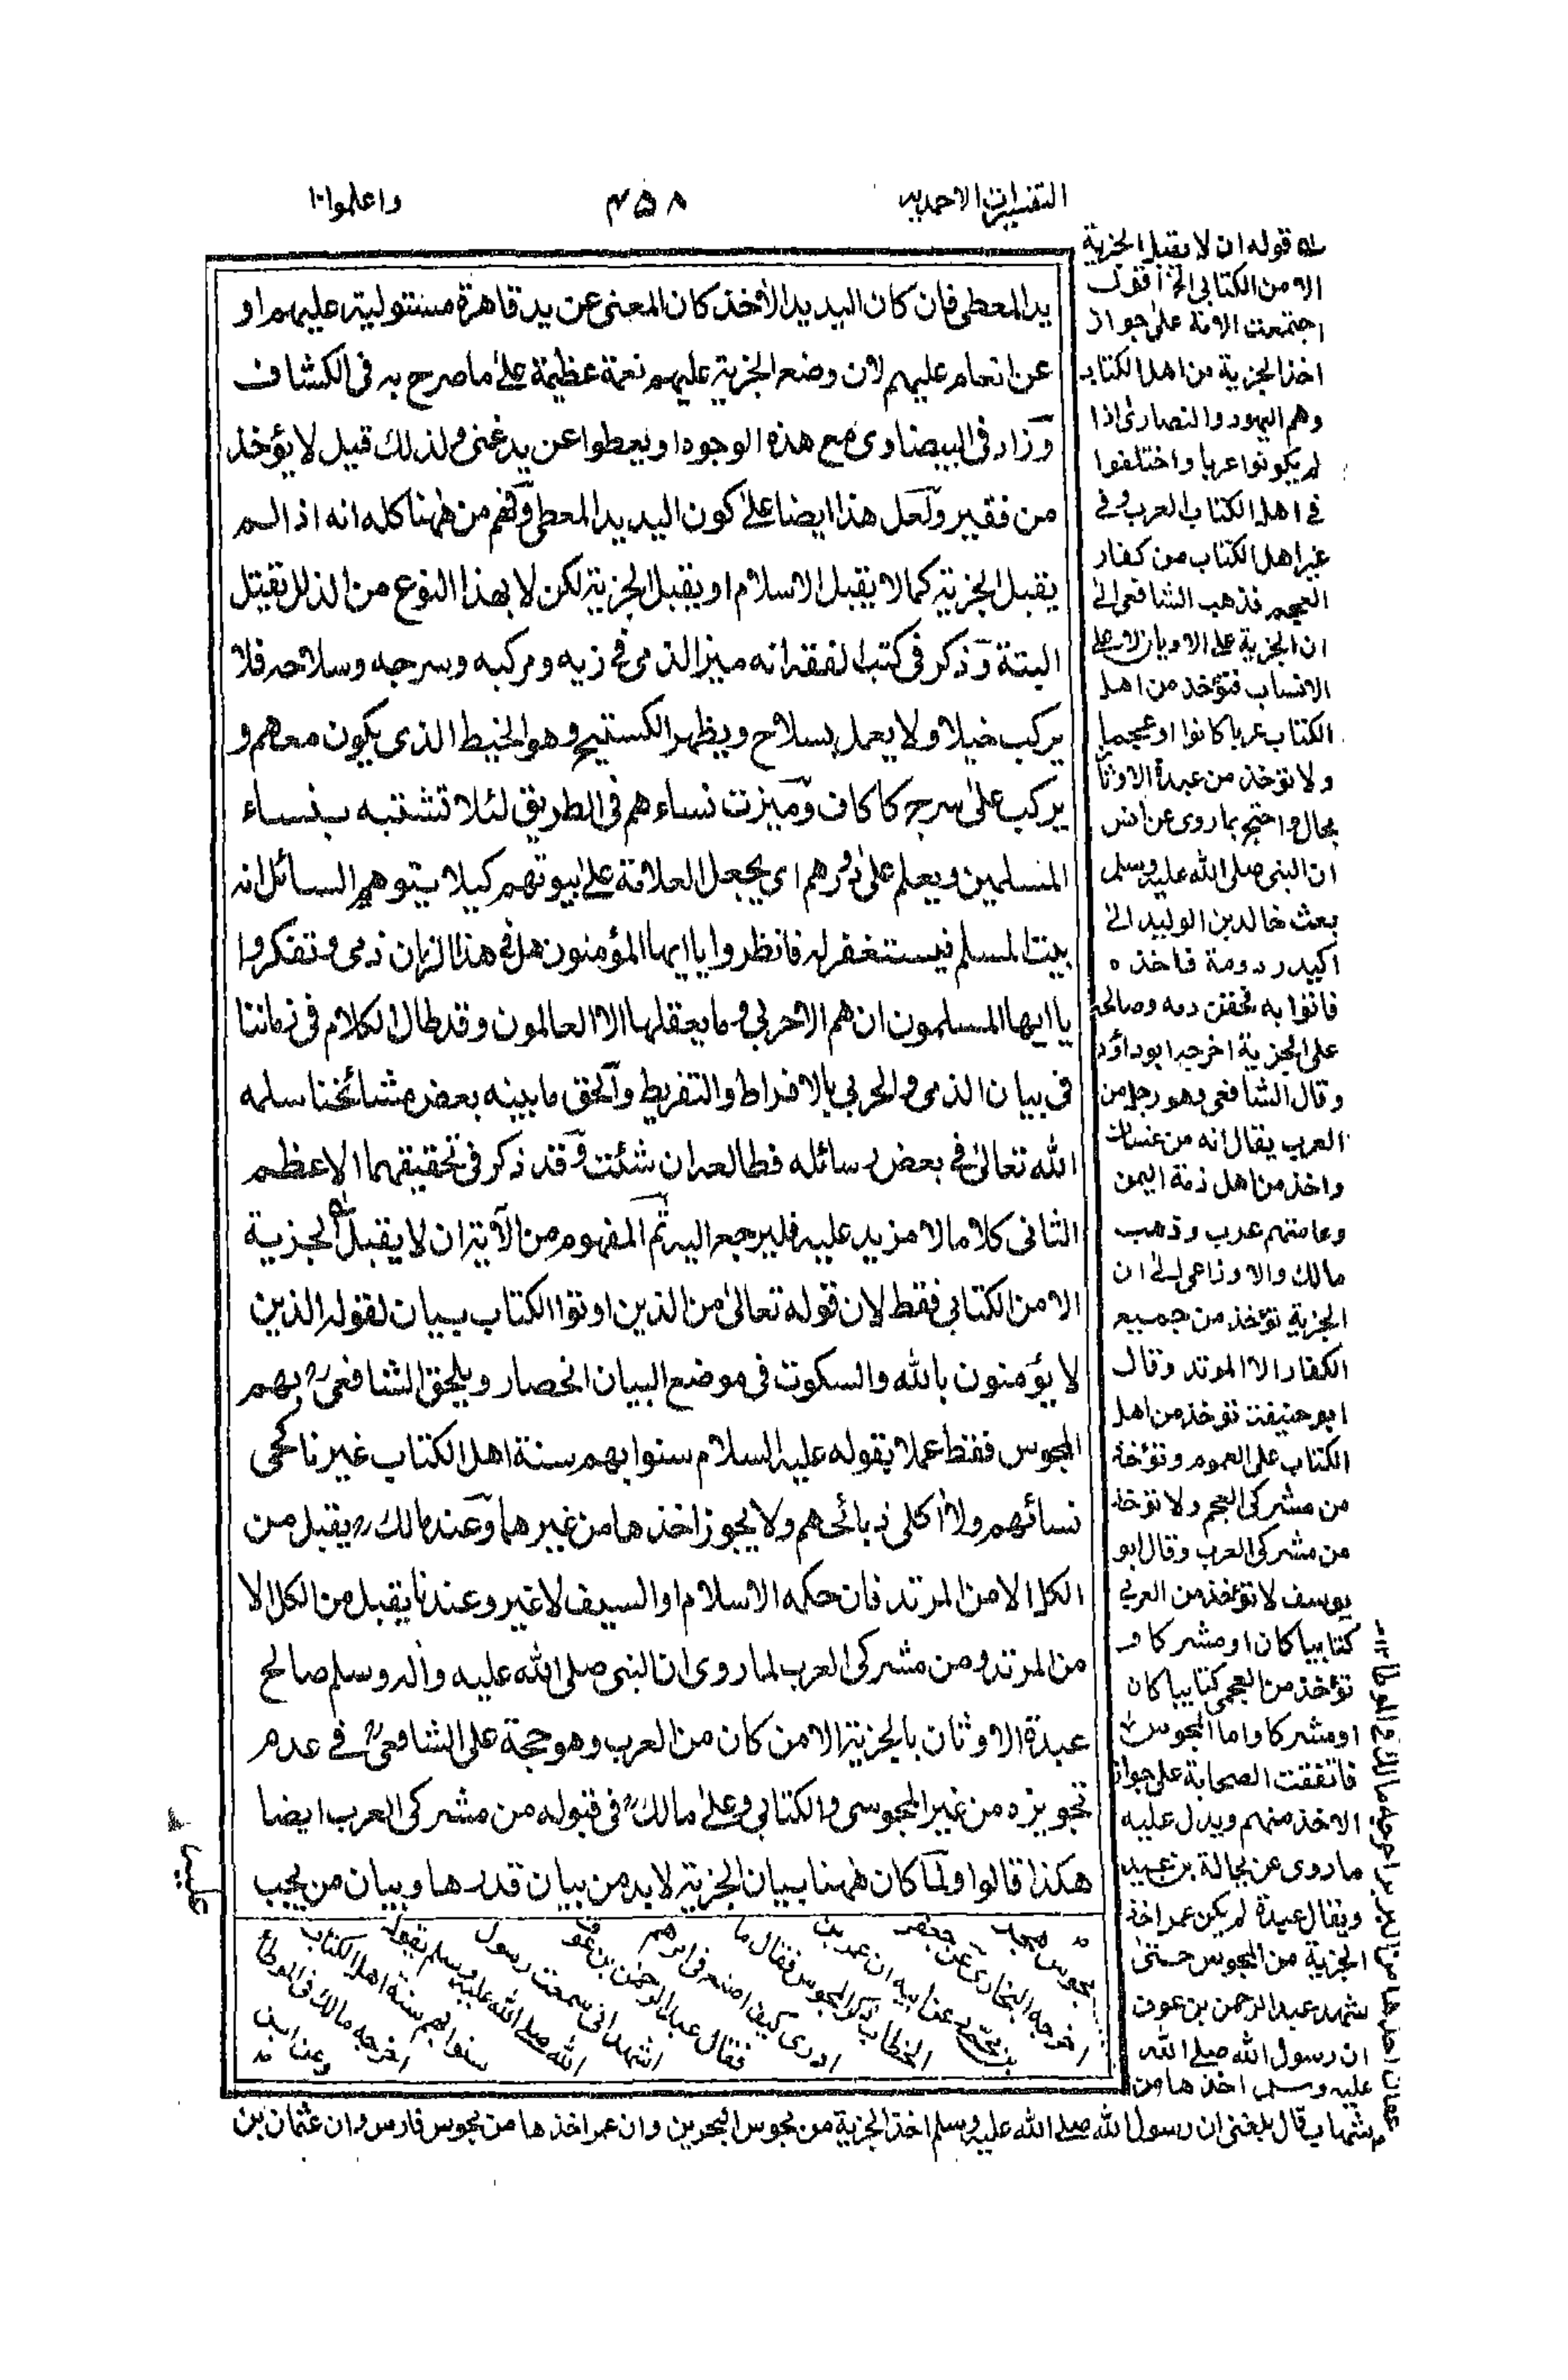 التفسيرات الاحمديه
۴۵۸
واعلموا۱۰
يد المعطى فان كان اليد يد الأخذ كان المعنى عن يد قاهرة مستولية عليهم او
عن انعام عليهم لان وضع الجزية عليهم نعمة عظيمة على ما صرح به فى الكشاف
وزاد فى البيضاوى مع هذه الوجوه او يعطوا عن يد غنى ولذلك قيل لا يؤخذ
من فقير ولعل هذا ايضا على كون اليد يد المعطى وفهم من ههنا كله انه اذا لم
يقبل الجزية كما لا يقبل الاسلام او يقبل الجزية لكن لا بهذا النوع من الذل يقتل
البتة وذكر فى كتب الفقه انه ميز الذمى فى زيه ومركبه وسرجه وسلاحه فلا
يركب خيلا ولا يعمل بسلاح ويظهر الكستيج وهو الخيط الذى يكون معهم و
يركب على سرج كاكاف وميزت نساءهم فى الطريق لئلا تشتبه بنساء
المسلمين ويعلم على دورهم اى يجعل العلامة على بيوتهم كيلا يتوهم السائل انه
بيت المسلم فيستغفر له فانظروا يا ايها المؤمنون هل فى هذا الزمان ذمى وتفكروا
يا ايها المسلمون ان هم الا حربى وما يعقلها الا العالمون وقد طال الكلام فى زماننا
فى بيان الذمى والحربى بالافراط والتفريط والحق ما بينه بعض مشائخنا سلمه
الله تعالى فى بعض رسائله فطالعه ان شئت وقد ذكر فى تحقيقهما الاعظم
الثانى كلاما لا مزيد عليه فليرجع اليه ثم المفهوم من الآية ان لا يقبل الجزية
الا من الكتابى فقط لان قوله تعالى من الذين اوتوا الكتاب بيان لقوله الذين
لا يؤمنون بالله والسكوت فى موضع البيان انحصار ويلحق الشافعىؒ بهم
المجوس فقط عملا بقوله عليه السلام سنوا بهم سنة اهل الكتاب غير ناكحى
نسائهم ولا أكلى ذبائحهم ولا يجوز اخذها من غيرهما وعند مالكؒ يقبل من
الكل الا من المرتد فان حكمه الاسلام او السيف لا غير وعندنا يقبل من الكل الا
من المرتد ومن مشركى العرب لما روى ان النبى صلى الله عليه وأله وسلم صالح
عبدة الاوثان بالجزية الا من كان من العرب وهو حجة على الشافعىؒ فى عدم
تجويزه من غير المجوسى والكتابى وعلى مالكؒ فى قبوله من مشركى العرب ايضا
هكذا قالوا ولما كان ههنا بيان الجزية لا بد من بيان قدرها وبيان من يجب
عليها
له قوله ان لا يقبل الجزية
الا من الكتابى الخ اقول
اجتمعت الامة على جواز
اخذ الجزية من اهل الكتاب
وهم اليهود والنصارى اذا
لم يكونوا عربا واختلفوا
فى اهل الكتاب العرب وفى
غير اهل الكتاب من كفار
العجم فذهب الشافعى الى
ان الجزية على الاديان لا على
الانساب فتؤخذ من اهل
الكتاب عربا كانوا او عجميا
ولا تؤخذ من عبدة الاوثان
بحال واحتج بما روى عن انس
ان النبى صلى الله عليه وسلم
بعث خالد بن الوليد الى
اكيدر دومة فاخذه
فاتوا به فحقن دمه وصالحه
على الجزية اخرجه ابو داؤد
وقال الشافعى وهو رجل من
العرب يقال انه من غسان
واخذ من اهل ذمة اليمن
وعامتهم عرب وذهب
مالك والاوزاعى الى ان
الجزية تؤخذ من جميع
الكفار الا المرتد وقال
ابو حنيفة تؤخذ من اهل
الكتاب على العموم وتؤخذ
من مشركى العجم ولا تؤخذ
من مشركى العرب وقال ابو
يوسف لا تؤخذ من العربى
كتابيا كان او مشركا و
تؤخذ من العجمى كتابيا كان
او مشركا واما المجوس
فاتفقت الصحابة على جواز
الاخذ منهم ويدل عليه
ما روى عن بجالة بن عبيد
ويقال عبدة لم يكن عمر اخذ
الجزية من المجوس حتى
شهد عبد الرحمن بن عوف
ان رسول الله صلى الله
عليه وسلم اخذها من
مجوس هجر
اخرجه البخارى عن جعفر
بن محمد عن ابيه ان عمر بن
الخطاب ذكر المجوس فقال ما
ادرى كيف اصنع فى امرهم
فقال عبد الرحمن بن عوف
اشهد انى سمعت رسول
الله صلى الله عليه وسلم يقول
سنوا بهم سنة اهل الكتاب
اخرجه مالك فى الموطأ
وعن ابن
شهاب قال بلغنى ان رسول الله صلى الله عليه وسلم اخذ الجزية من مجوس البحرين وان عمر اخذها من مجوس فارس وان عثمان بن
عفان اخذها من البربر اخرجه مالك فى الموطأ ۱۲